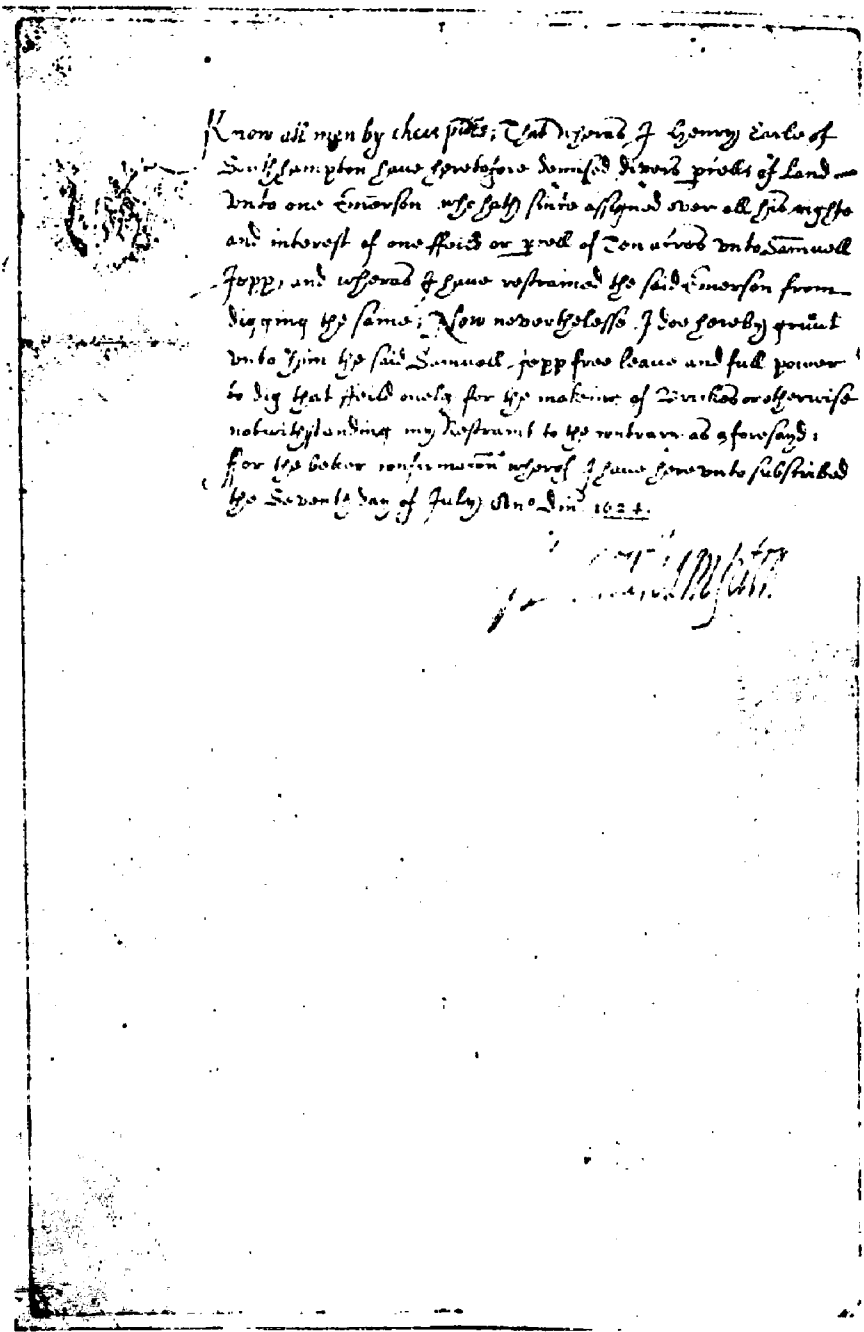 Know all men by these pnts; That wheras I Henry Earle of
Southampton have heretofore demised divers pcells of Land
vnto one Emerson who hath since assigned over all his righte
and interest of one ffeild or pcell of Ten acres vnto Samuell
Jopp, and wheras I have restrained the said Emerson from
digging the same; Now neverthelesse I doe hereby graunt
vnto him the said Samuell Jopp free leave and full power
to dig that ffeild onely for the makeing of Brickes or otherwise
notwithstanding my Restraint to the contrary as aforesayd;
For the better confirmacon wherof I have herevnto subscribed
the Seventh day of July Ano Dm 1624.